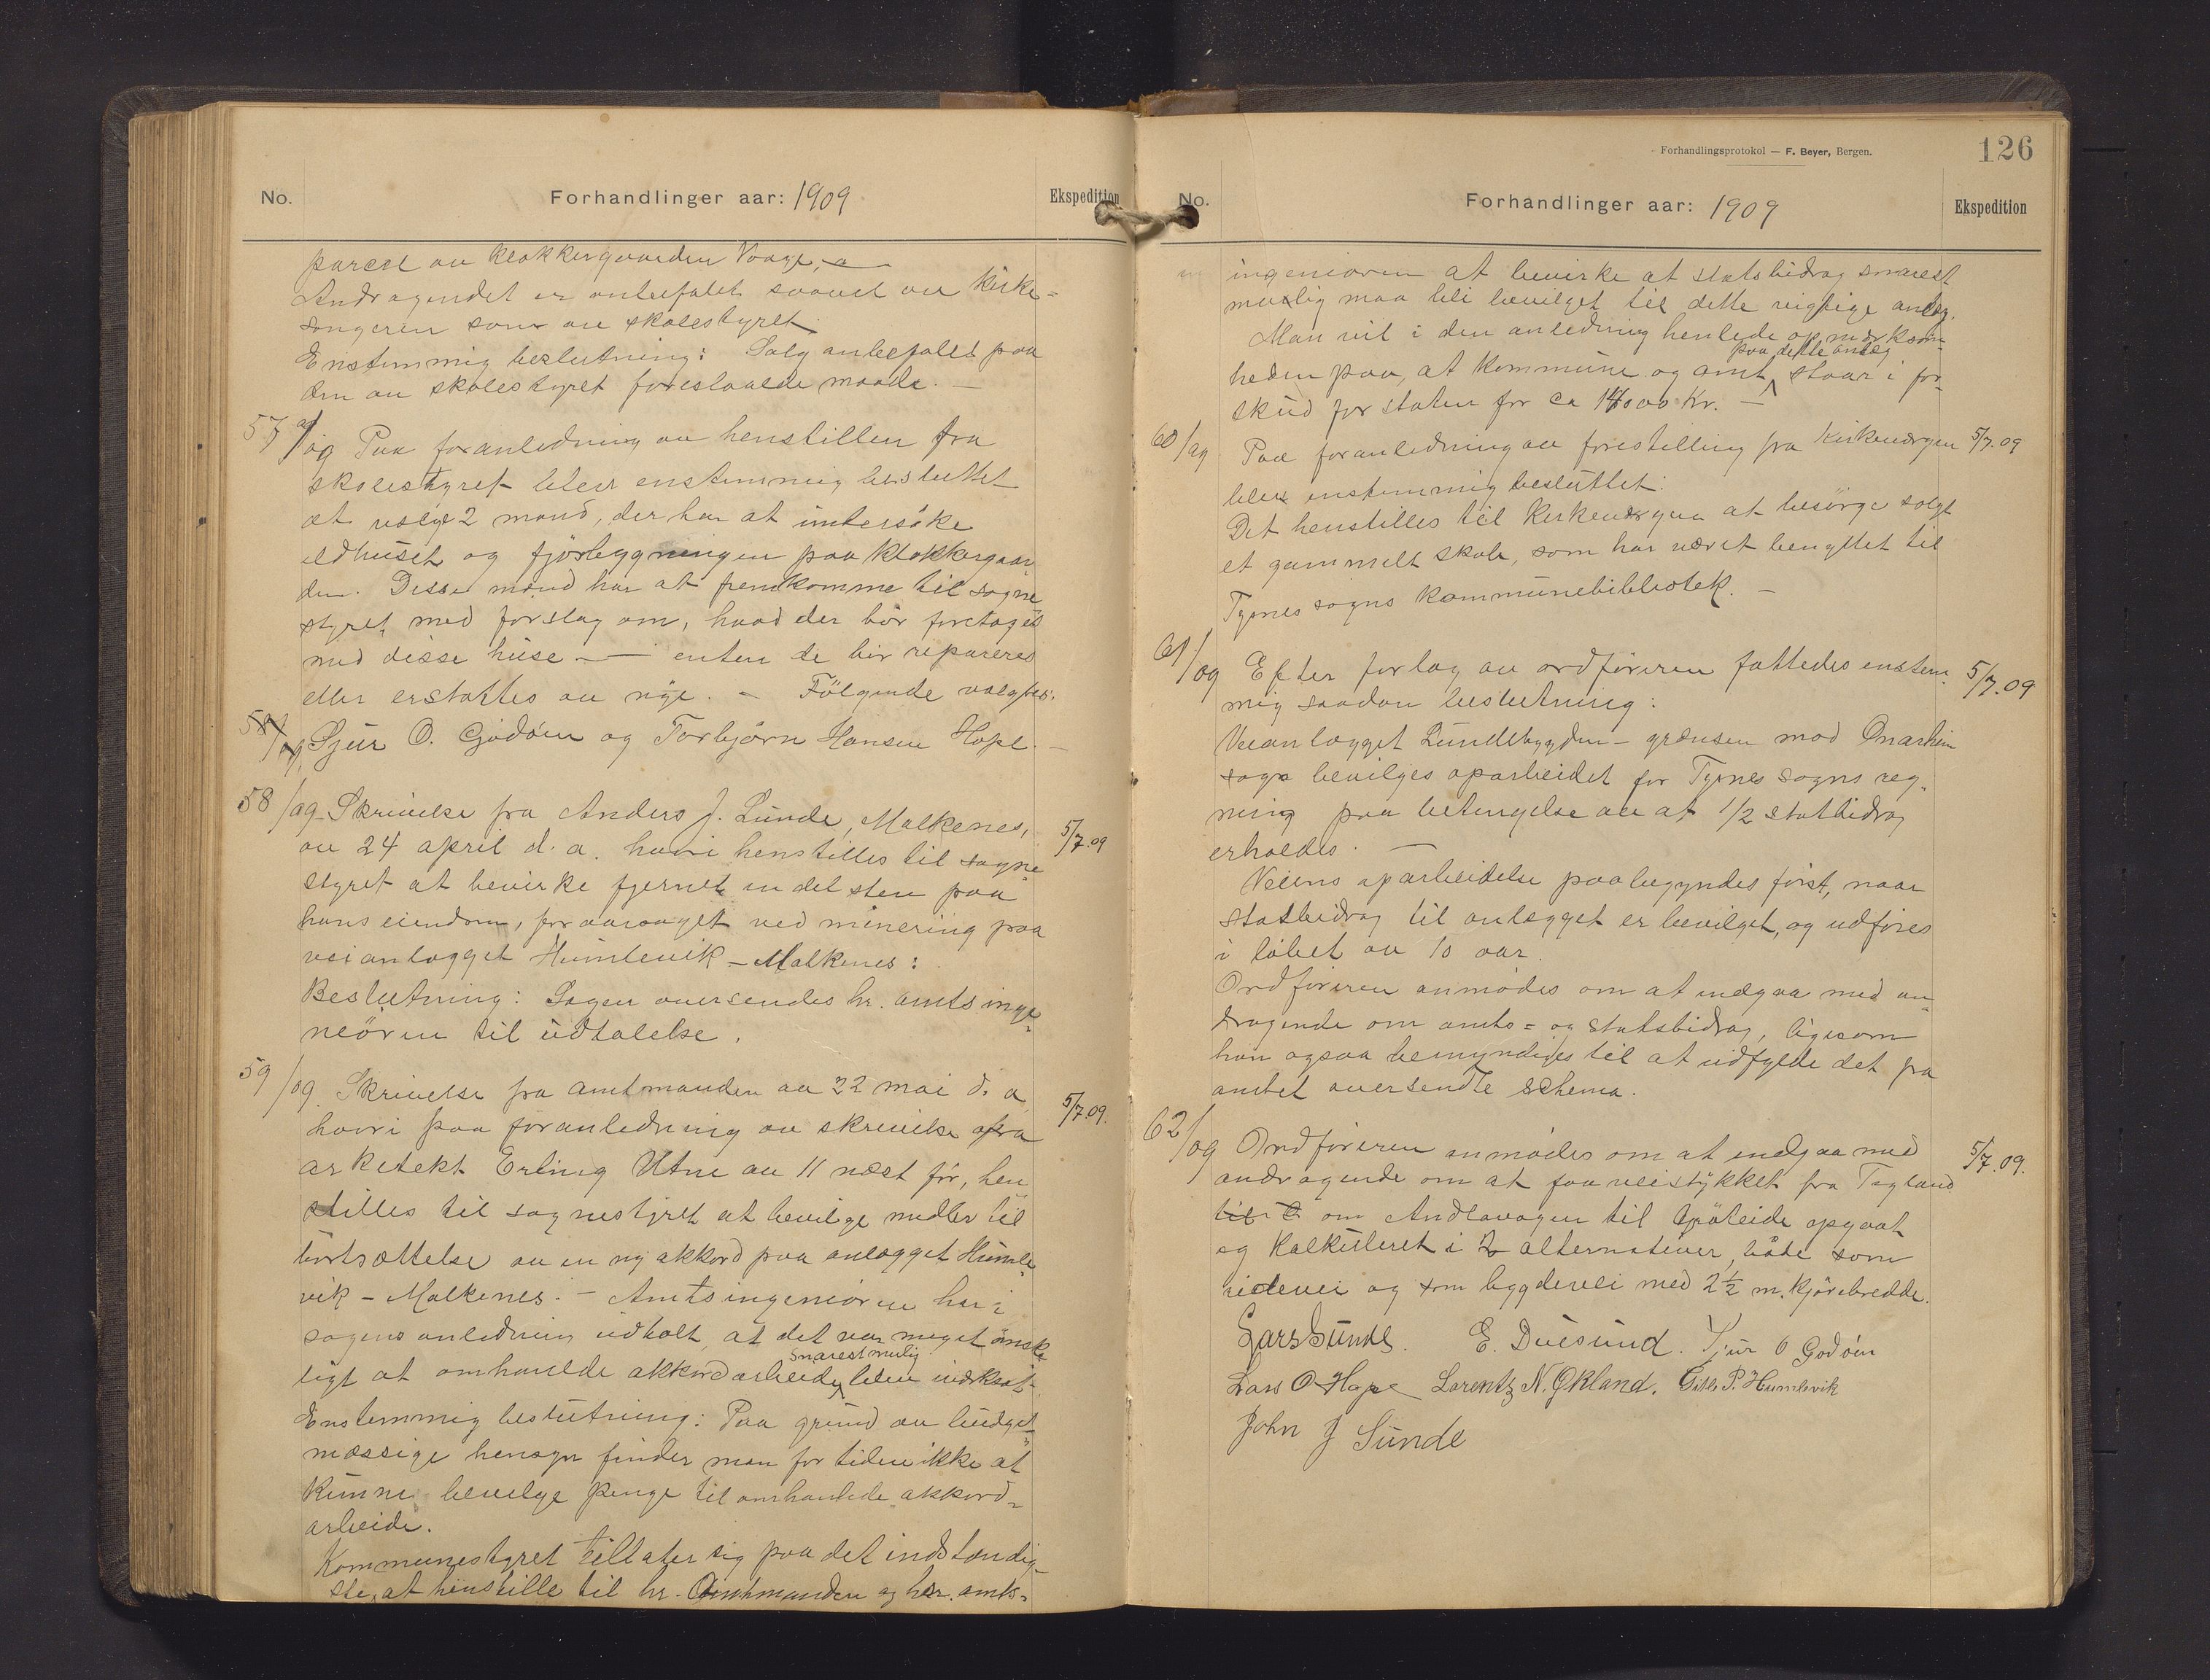 No.
Forhandlinger aar: 1909
Ekspedition
parcel av klokkergaarden Vaage,
Andragendet er anbefalet saavel av kirke-
sangeren som av skolestyret.
Enstemmig beslutning: Salg anbefales paa
den av skolestyret foreslaaede maade. —
57/09 Paa foranledning av henstillen fra
skolestyret blev enstemmig besluttet
at vælge 2 mænd, der har at undersöke
eldhuset og fjösbygningen paa klokkergaar-
den. Disse mænd har at fremkomme til sogne-
styret med forslag om, hvad der bör foretages
med disse huse — enten de bör repareres
eller erstattes av nye. — Fölgende valgtes:
58/09 Sjur O. Godöen og Torbjörn Hansen Hope. —
58/09 Skrivelse fra Anders J. Lunde, Malkenes,
av 24 april d. a. hvori henstilles til sogne-
styret at bevirke fjernet en del sten paa
hans eiendom, foraarsaget ved minering paa
veianlægget Humlevik - Malkenes:
Beslutning: Sagen oversendes hr. amtsinge-
neören til udtalelse.
5/7.09
59/09. Skrivelse fra amtmanden av 22 mai d. a.
hvori paa foranledning av skrivelse fra
arkitekt Erling Utne av 11 næst för, hen-
stilles til sognestyret at bevilge midler til
fortsættelse av en ny akkord paa anlægget Humle-
vik - Malkenes. - Amtsingeniören har i
sagens anledning udtalt, at det var meget önske-
ligt at omhandlede akkordarbeide snarest mulig blev iverksat.
Enstemmig beslutning: Paa grund av budget-
mæssige hensyn finder man for tiden ikke at
kunne bevilge penge til omhandlede akkord-
arbeide.
Kommunestyret tillater sig paa det indstændig-
ste, at henstille til hr. Amtmanden og herr. amts-
5/7.09.
Forhandlingsprotokol — F. Beyer, Bergen.
126
No.
Forhandlinger aar: 1909
Ekspedition
ingeniören at bevirke at statsbidrag snarest
muelig maa bli bevilget til dette vigtige anlæg.
Man vil i den anledning henlede opmærksom-
heden paa, at kommune og amt paa dette anlæg staar i for-
skud for staten for ca 14000 Kr. —
60/09 Paa foranledning av forestilling fra Kirkeværgen
blev enstemmig besluttet:
Det henstilles til Kirkeværgen at besörge solgt
et gammelt skab, som har været benyttet til
Tysnes sogns kommunebibliotek. —
5/7.09
61/09 Efter forlag av ordföreren fattedes enstem-
mig saadan beslutning:
Veianlægget Lundebygden - grænsen mod Onarheim
sogn bevilges oparbeidet for Tysnes sogns reg-
ning paa betingelse av at 1/2 statbidrag
erholdes. —
Veiens oparbeidelse paabegyndes först, naar
statbidrag til anlægget er bevilget, og udföres
i löbet av 10 aar.
Ordföreren anmodes om at indgaa med an-
dragende om amts- og statsbidrag, ligesom
han ogsaa bemyndiges til at udfylde det fra
amtet oversendte schema.
5/7.09
62/09 Ordföreren anmodes om at indgaa med
andragende om at faa veistykket fra Tegland
om Andlavaagen til opgaat
og kalkuleret i 2 alternativer, både som
ridevei og som bygdevei med 2½ m. kjörebredde.
5/7.09.
Lars Sunde. E. Duesund. Sjur O Godöen
Lars O Hope Lorentz N. Økland. Gitle P. Humlevik
John J Sunde